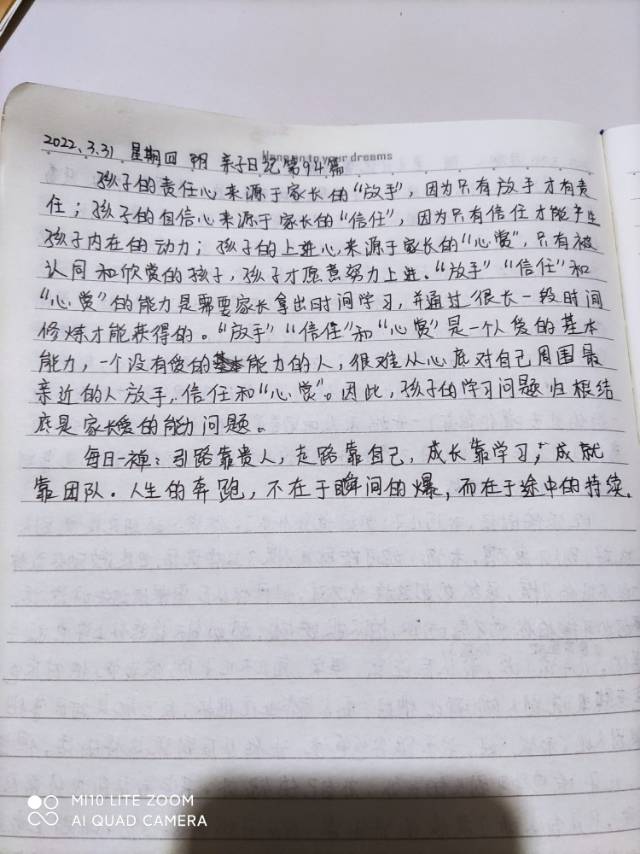 2022.3.31 星期四 阴 亲子日记第94篇
to your dreams
孩子的责任心来源于家长的“放手”，因为只有放手才有责
任；孩子的自信心来源于家长的“信任”，因为只有信任才能产生
孩子内在的动力；孩子的上进心来源于家长的“心赏”，只有被
认同和欣赏的孩子，孩子才愿意努力上进。“放手”“信任”和
“心赏”的能力是需要家长拿出时间学习，并通过很长一段时间
修炼才能获得的。“放手”“信任”和“心赏”是一个人爱的基本
能力，一个没有爱的能力的人，很难从心底对自己周围最
亲近的人放手，信任和“心赏”。因此，孩子的学习问题归根结
底是家长爱的能力问题。
每日一禅：引路靠贵人，走路靠自己，成长靠学习，成就
靠团队。人生的奔跑，不在于瞬间的爆，而在于途中的持续。
MI 10 LITE ZOOM
AI QUAD CAMERA